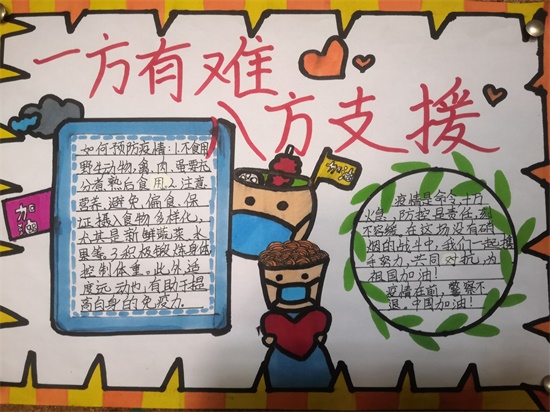 一方有难
八方支援
如何预防疫情:1.不食用
野生动物,禽、肉、蛋要充
分煮熟后食用.2.注意
营养、避免偏食,保
证摄入食物多样化,
尤其是新鲜蔬菜、水
果等.3.积极锻炼身体
控制体重。此外适
度运动也有助于提
高自身的免疫力.
加油
加油
疫情是命令,十万
火急,防控是责任,刻
不容缓.在这场没有硝
烟的战斗中,我们一起携
手努力,共同对抗,为
祖国加油!
疫情在前,警察不
退,中国加油!